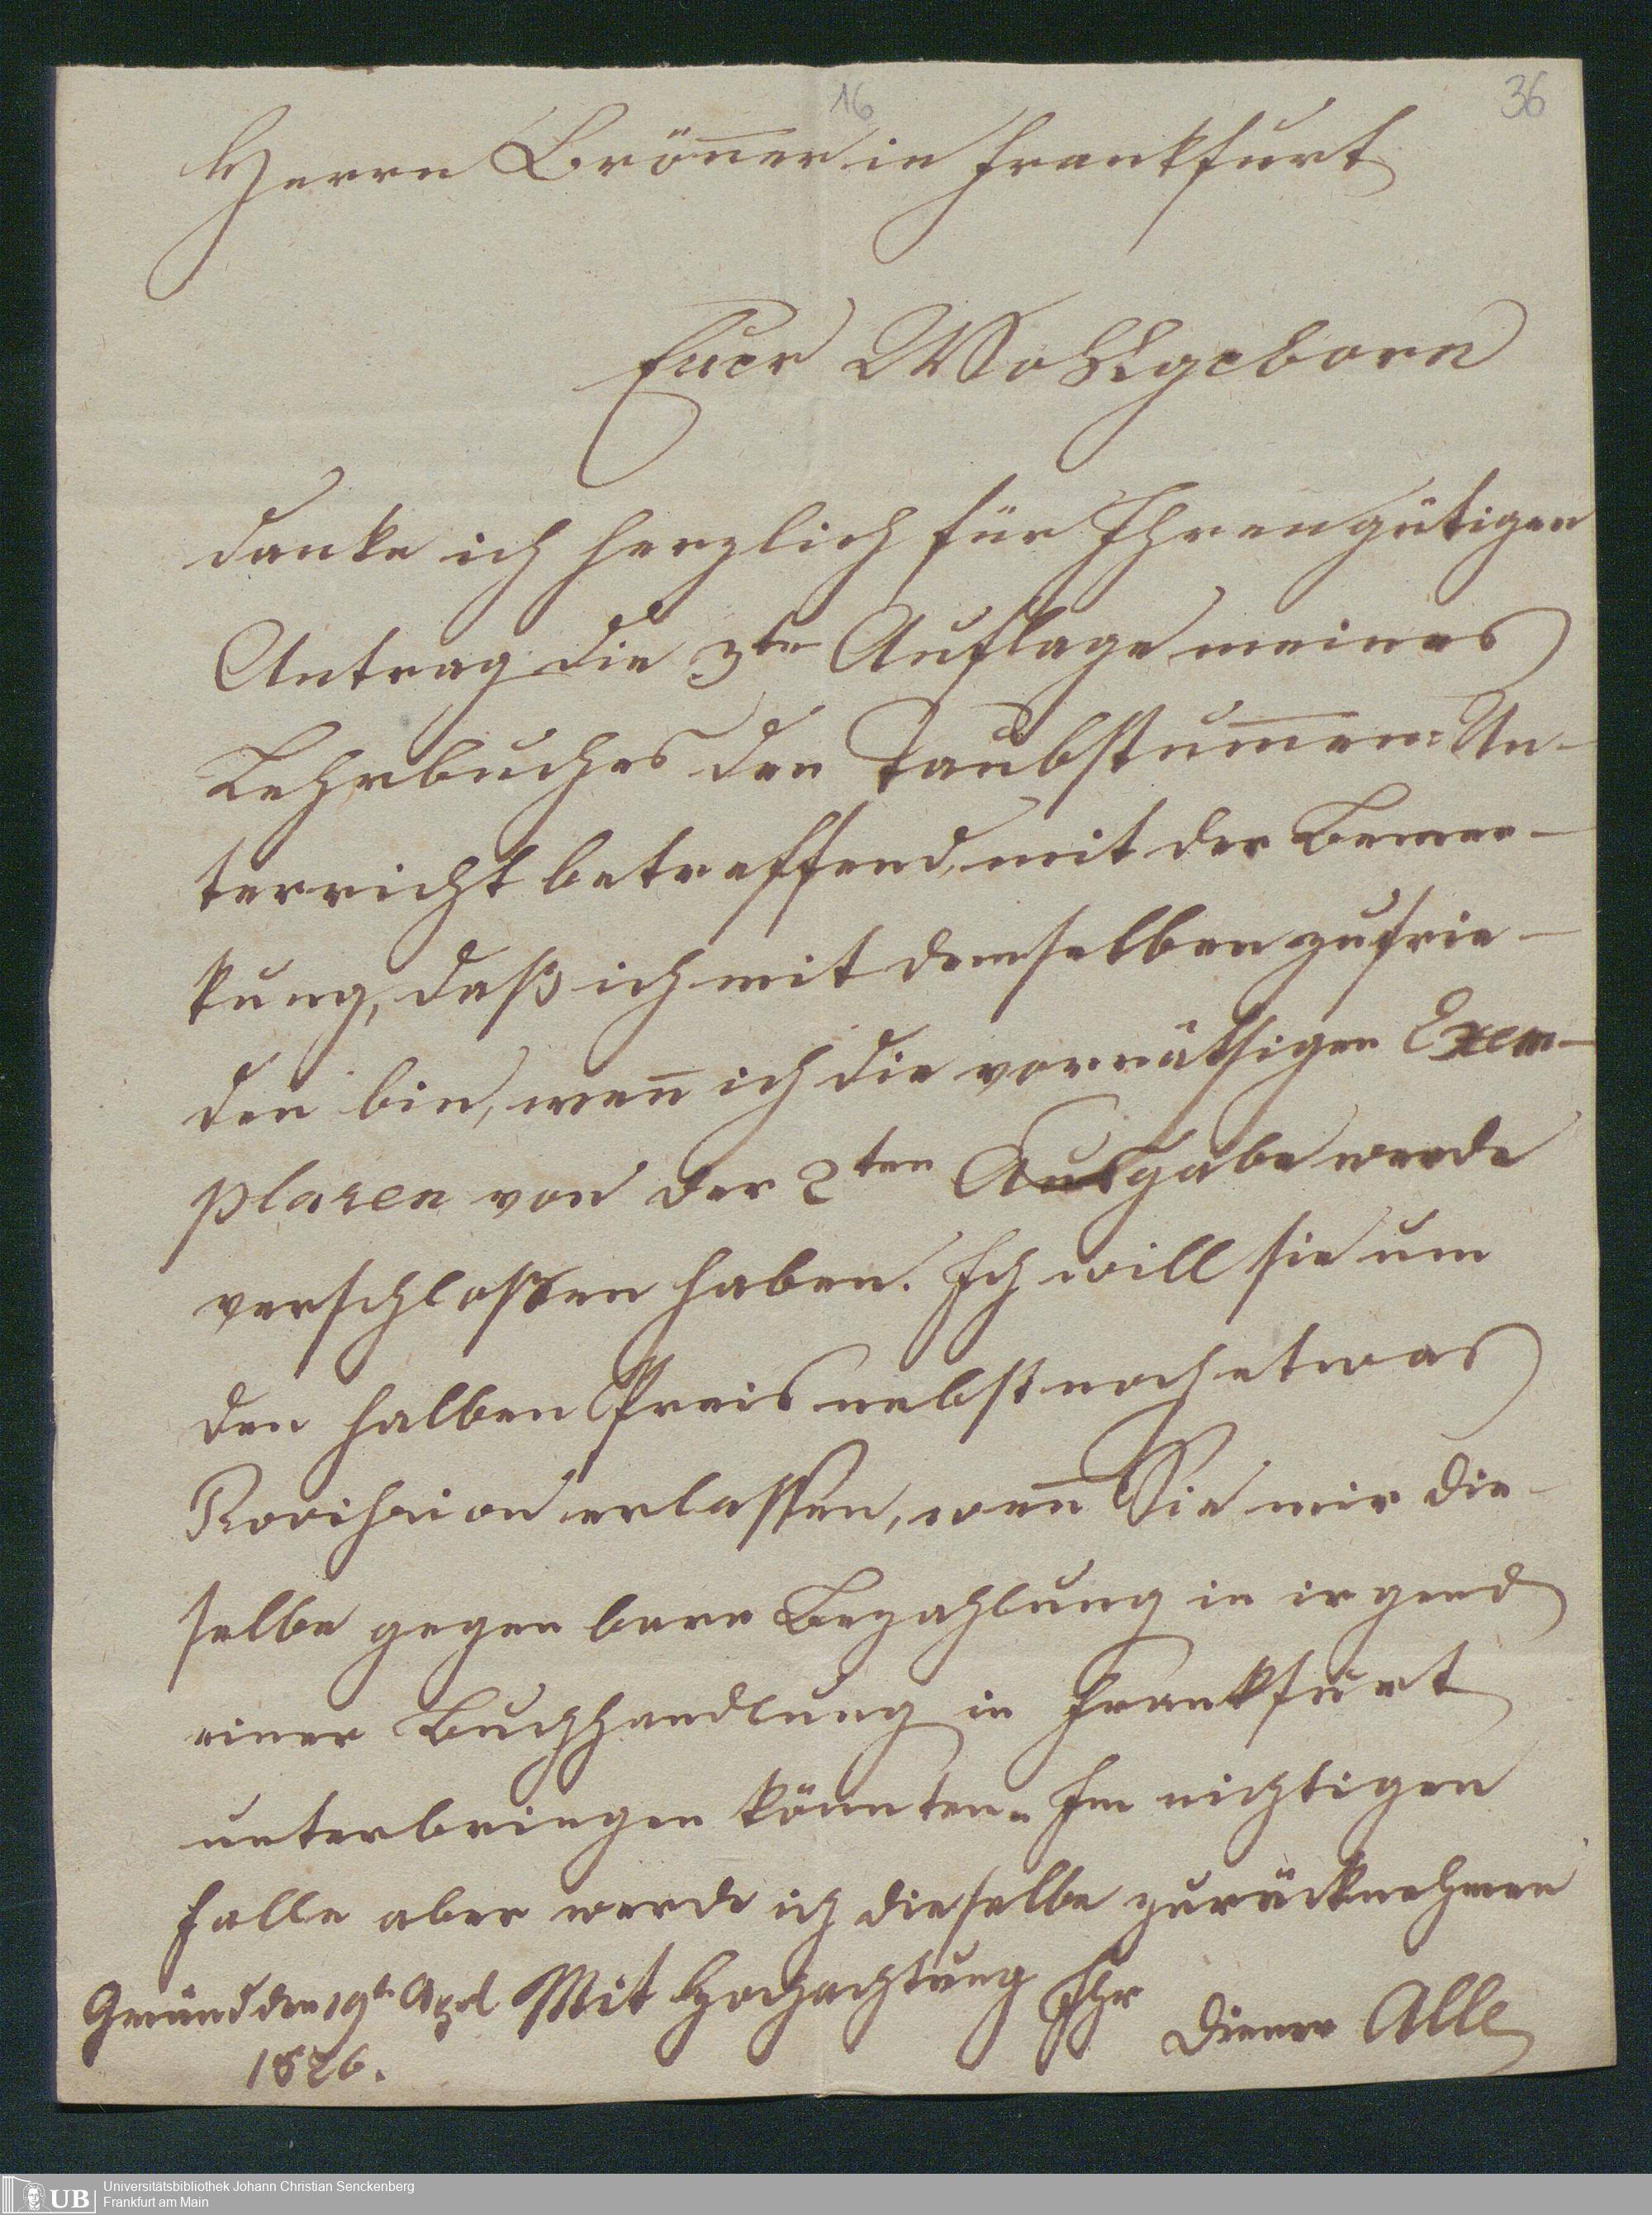 16
36
Herrn Brön̅er in Frankfurt
Euer Wohlgeborn
danke ich herzlich für Ihren gütigen
Antrag die 3te Auflage meines
Lehrbuches den Taubstum̅en-Un-
terricht betreffend, mit der Bemer-
kung, daß ich mit demselben zufrie-
den bin, wen̅ ich die vorräthigen Exem-
plaren von der 2ten Ausgabe werde
verschloßen haben. Ich will sie um
den halben Preis nebst noch etwas
erlassen, wen̅ Sie mir die-
selbe gegen bare Bezahlung in irgend
einer Buchhandlung in Frankfurt
unterbringen könnten. Im nichtigen
Falle aber werde ich dieselbe zurücknehmen
Gmünd den 19t Apl Mit Hochachtung Ihr Diener Alle
1826.
UB Universitätsbibliothek Johann Christian Senckenberg
Frankfurt am Main